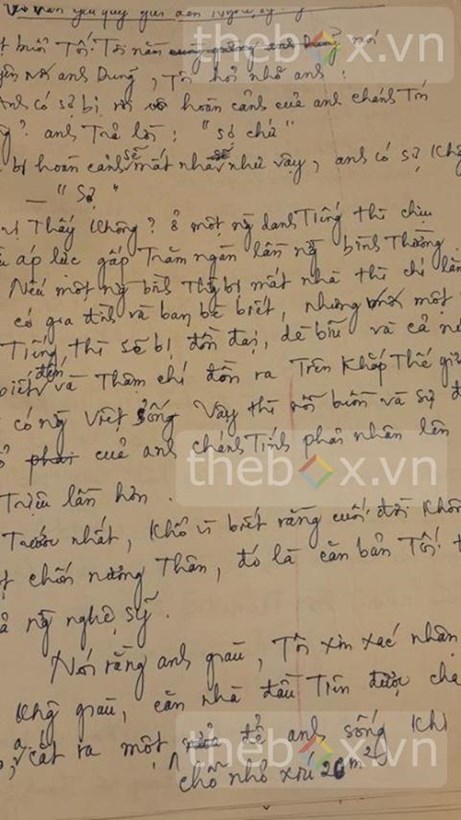 yêu quý gửi đến Nghệ sỹ
buổi Tối Tôi nằm nói
với anh Dũng, Tôi hỏi nhỏ anh :
anh có sợ bị rơi vô hoàn cảnh của anh chánh Tín
? anh Trả lời : "Sợ chứ"
bị hoàn cảnh sẽ mất nhà như vậy, anh có sợ
_ "Sợ"
Thấy không? ở một ng danh Tiếng thì chịu
áp lực gấp Trăm ngàn lần ng bình Thường
Nếu một ng bình Thg bị mất nhà thì chỉ
có gia đình và bạn bè biết, nhưng một
Tiếng thì sẽ bị đồn đại, dè bĩu và cả
biết đến và Thậm chí đồn ra Trên khắp Thế
có ng Việt sống Vậy thì nỗi buồn và sự
của anh chánh Tính phải nhân lên
Triệu lần hơn .
Trước nhất, khổ vì biết rằng cuối đời
chốn nương Thân, đó là căn bản Tối
ng nghệ sỹ .
Nói rằng anh giàu, Tôi xin xác nhận
Khg giàu, căn nhà đầu Tiên được
cắt ra một để anh sống
chỗ nhỏ xíu 20m2
thebox.vn
thebox.vn
thebox.vn
thebox.vn